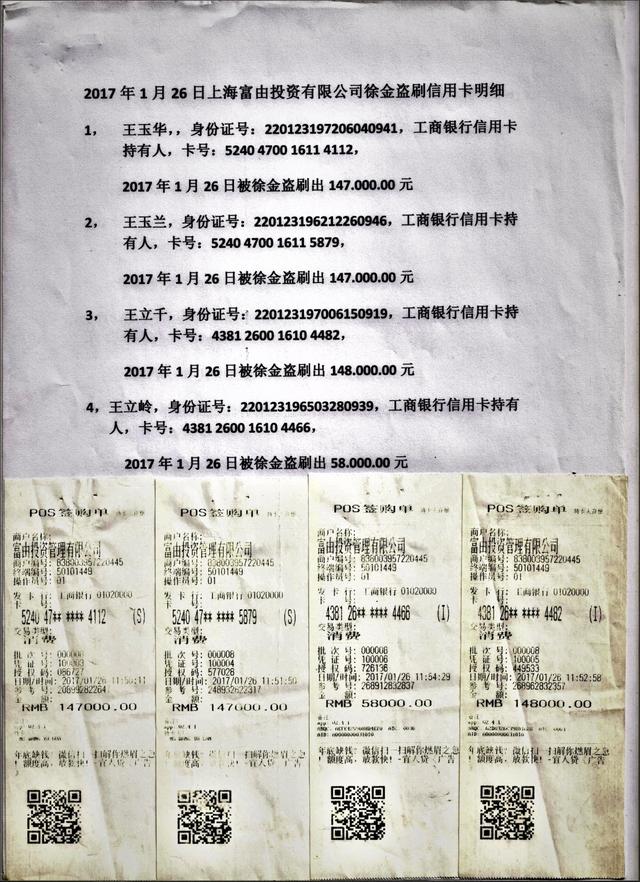 2017 年 1 月 26 日上海富由投资有限公司徐金盗刷信用卡明细
1， 王玉华，，身份证号：220123197206040941，工商银行信用卡
持有人，卡号：5240 4700 1611 4112，
2017 年 1 月 26 日被徐金盗刷出 147.000.00 元
2， 王玉兰，身份证号：220123196212260946，工商银行信用卡持
有人，卡号：5240 4700 1611 5879，
2017 年 1 月 26 日被徐金盗刷出 147.000.00 元
3， 王立千，身份证号：220123197006150919，工商银行信用卡持
有人，卡号：4381 2600 1610 4482，
2017 年 1 月 26 日被徐金盗刷出 148.000.00 元
4，王立岭，身份证号：220123196503280939，工商银行信用卡持有
人，卡号：4381 2600 1610 4466，
2017 年 1 月 26 日被徐金盗刷出 58.000.00 元
POS签购单
商户名称：
富由投资管理有限公司
商户编号：838003957220445
终端编号：50101449
操作员号：01
发卡行：工商银行 01020000
卡号
5240 47** **** 4112 (S)
交易类型：
消费
批次号：000008
凭证号：100003
授权码：086727
日期/时间：2017/01/26
参考号：268992822640
金额：
RMB 147000.00
年底缺钱？微信扫一扫解你燃眉之急
！额度高，放款快！-宜人贷（广告
POS签购单
商户名称：
富由投资管理有限公司
商户编号：838003957220445
终端编号：50101449
操作员号：01
发卡行：工商银行 01020000
卡号
5240 47** **** 5879 (S)
交易类型：
消费
批次号：000008
凭证号：100004
授权码：577028
日期/时间：2017/01/26 11:51:50
参考号：248932622317
金额：
RMB 147000.00
年底缺钱？微信扫一扫解你燃眉之急
！额度高，放款快！-宜人贷（广告
POS签购单
商户名称：
富由投资管理有限公司
商户编号：838003957220445
终端编号：50101449
操作员号：01
发卡行：工商银行 01020000
卡号
4381 26** **** 4466 (I)
交易类型：
消费
批次号：000008
凭证号：100006
授权码：726136
日期/时间：2017/01/26 11:54:29
参考号：268912832837
金额：
RMB 58000.00
年底缺钱？微信扫一扫解你燃眉之急
！额度高，放款快！-宜人贷（广告
POS签购单
商户名称：
富由投资管理有限公司
商户编号：838003957220445
终端编号：50101449
操作员号：01
发卡行：工商银行 01020000
卡号
4381 26** **** 4482 (I)
交易类型：
消费
批次号：000008
凭证号：100005
授权码：449533
日期/时间：2017/01/26 11:52:58
参考号：268962832357
金额：
RMB 148000.00
年底缺钱？微信扫一扫解你燃眉之急
！额度高，放款快！-宜人贷（广告